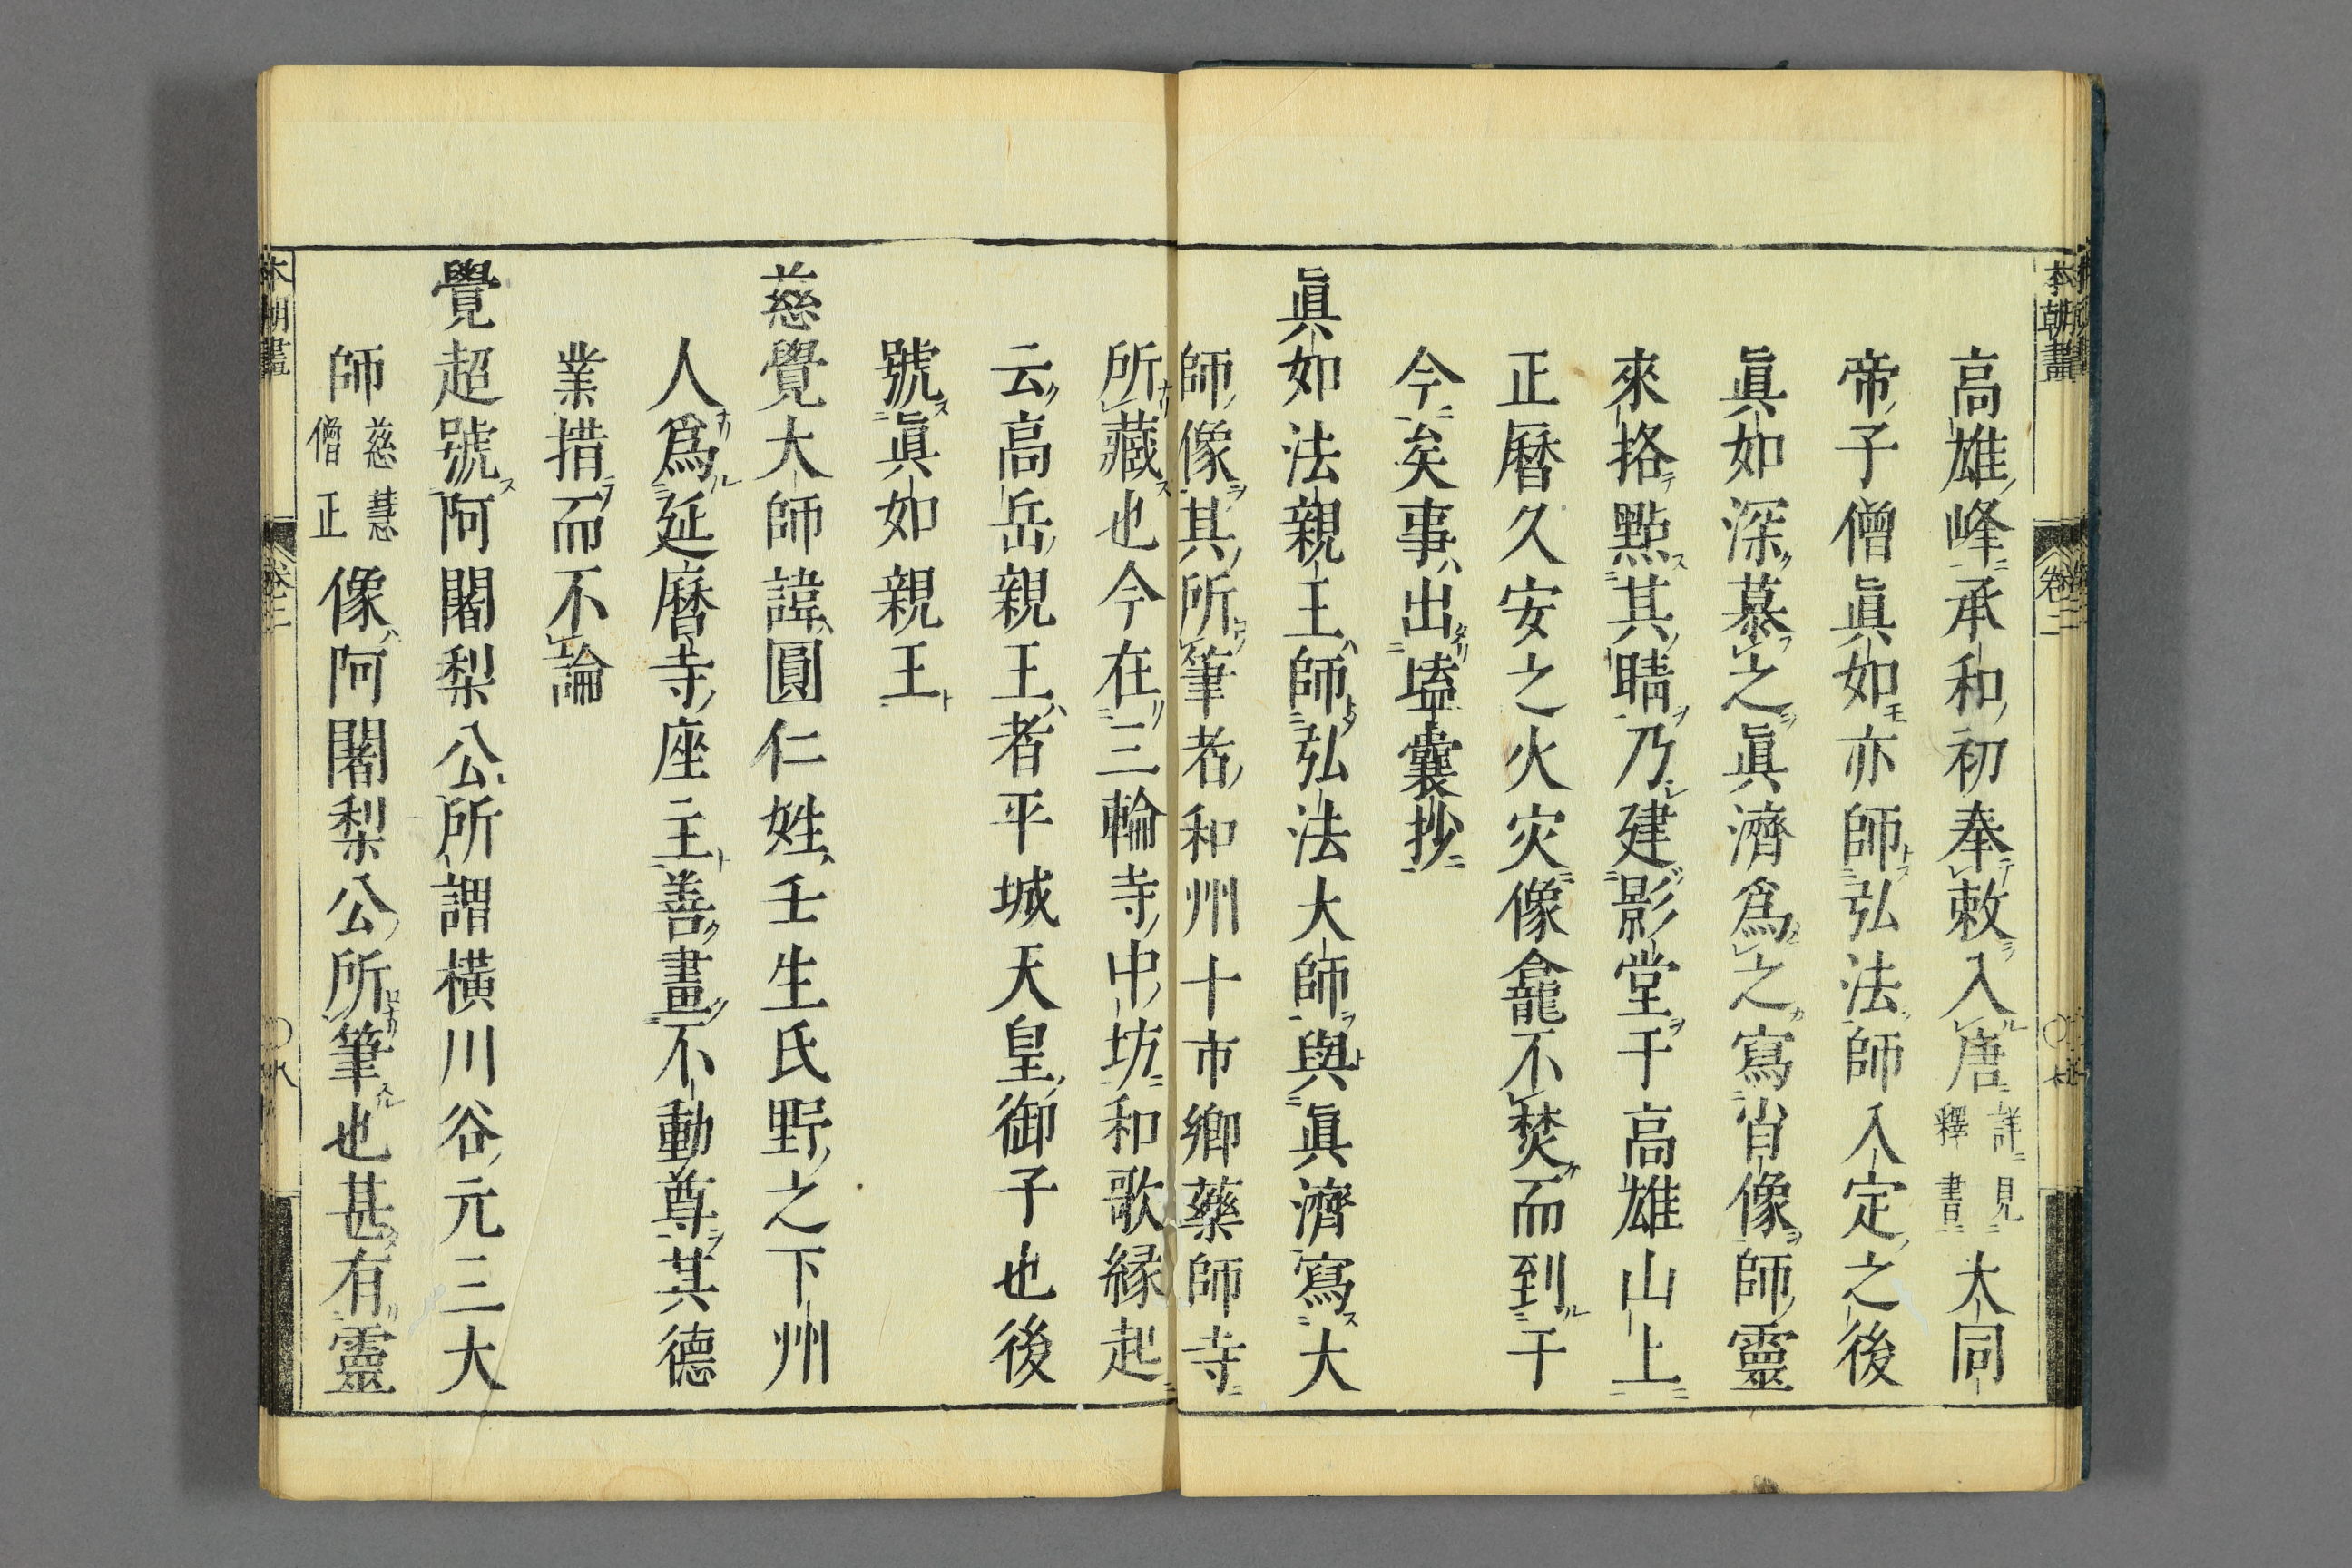 高雄峰承和初奉敕入唐詳見釋書大同
帝子僧眞如亦師弘法師入定之後
眞如深慕之眞濟爲之寫肖像師靈
來挌點其睛乃建影堂于高雄山上
正曆久安之火灾像龕不焚而到于
今矣事出壒囊抄
眞如法親王師弘法大師與眞濟寫大
師像其所筆者和州十市鄉藥師寺
所藏也今在三輪寺中坊和歌縁起
云高岳親王者平城天皇御子也後
號眞如親王
慈覺大師諱圓仁姓壬生氏野之下州
人爲延曆寺座主善畫不動尊其德
業措而不論
覺超號阿闍梨公所謂橫川谷元三大
師慈慧僧正像阿闍梨公所筆也甚有靈